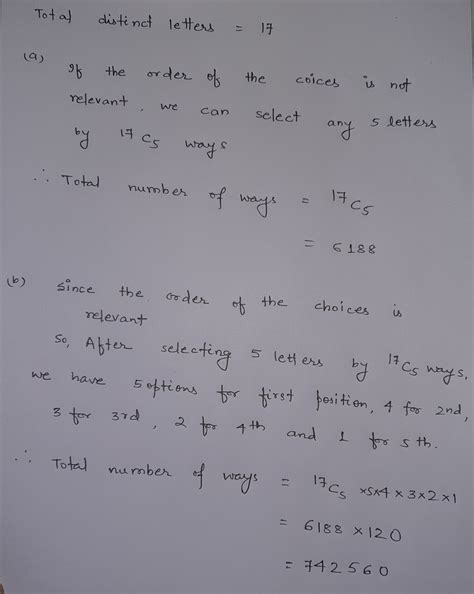 Total distinct letters = 17
(a) If the order of the coices is not
relevant, we can select any 5 letters
by 17C5 ways
∴ Total number of ways = 17C5
= 6188
(b) since the order of the choices is
relevant
So, After selecting 5 letters by 17C5 ways,
we have 5 options for first position, 4 for 2nd,
3 for 3rd, 2 for 4th and 1 for 5th.
∴ Total number of ways = 17C5 x5x4x3x2x1
= 6188 x 120
= 742560